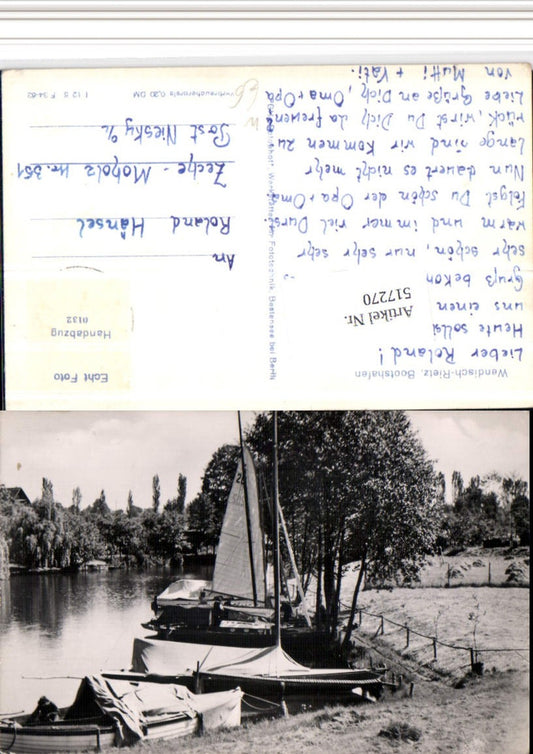 Wendisch-Rietz, Bootshafen
Lieber Roland!
Heute sollst
uns einen
Gruß bekom
sehr schön, nur sehr
warm und immer viel Durst.
Folgst Du schön der Opa + Oma
Nun dauert es nicht mehr
lange und wir kommen zu
rück, wirst Du Dich da freuen?
Liebe Grüße an Dich, Oma + Opa
von Mutti + Vati.
Artikel Nr.
517270
Echt Foto
Handabzug
0132
An
Roland Hänsel
Zeche - Moholz Nr. 351
Post Niesky O/L
Werkstätten für Fototechnik, Bestensee bei Berlin
Verbraucherpreis 0,20 DM
I 12 5 F 34-62